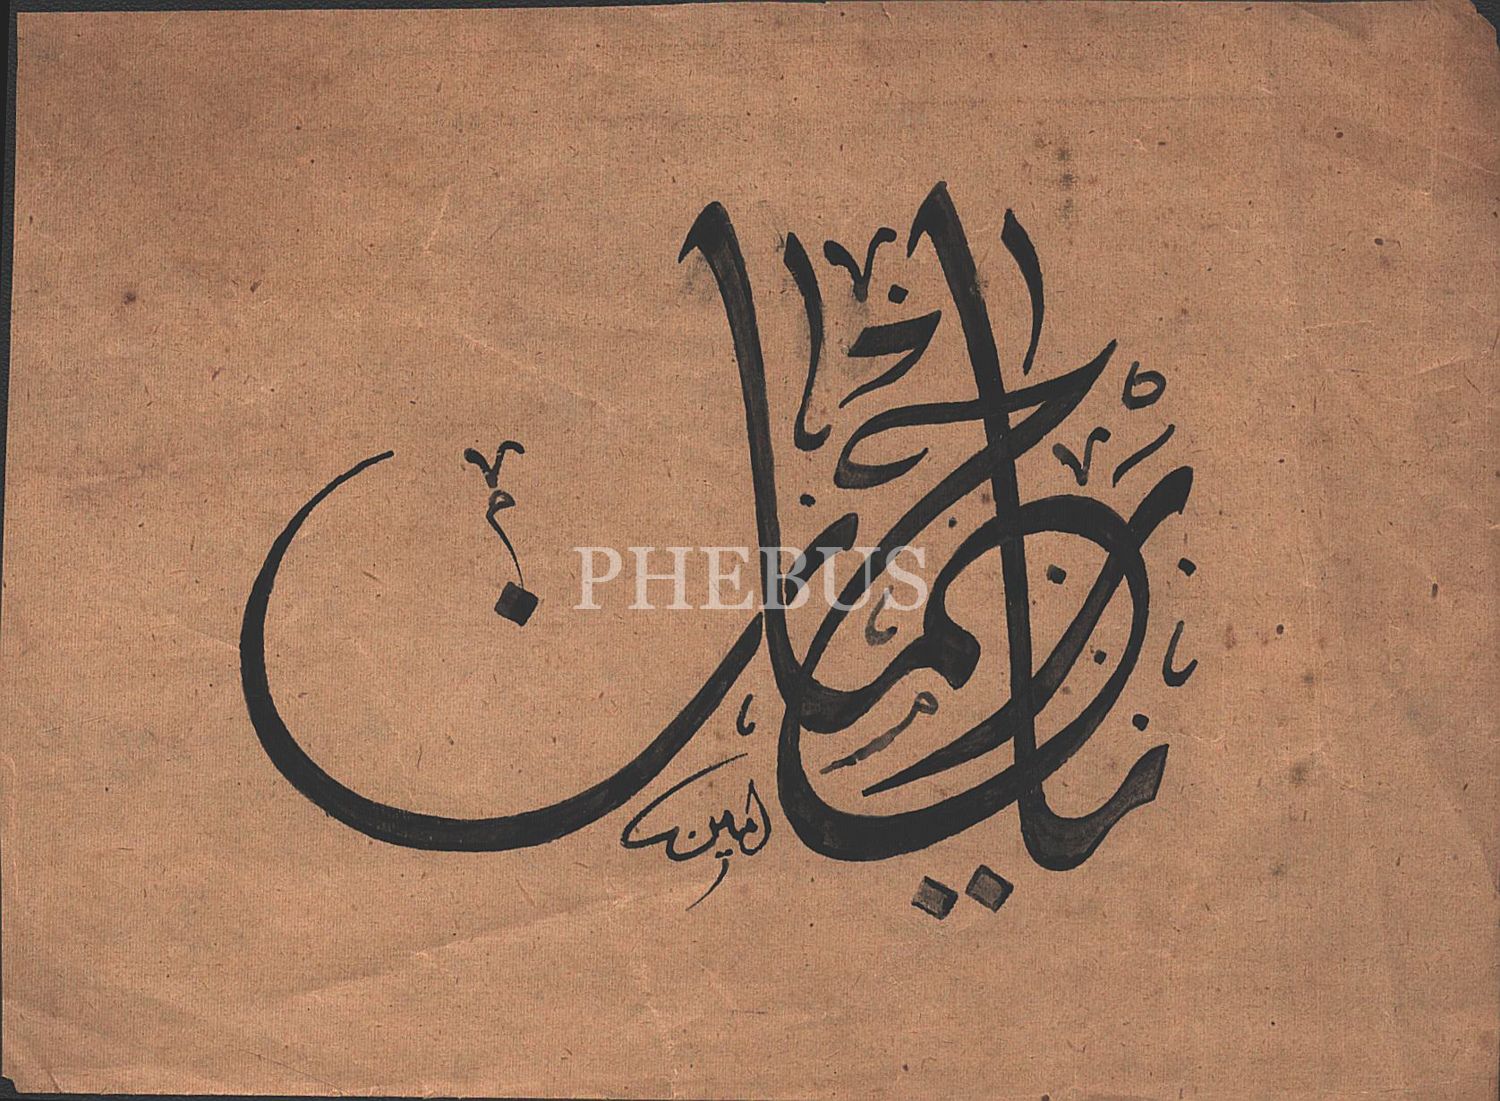 يا رحمان
امين
PHEBUS